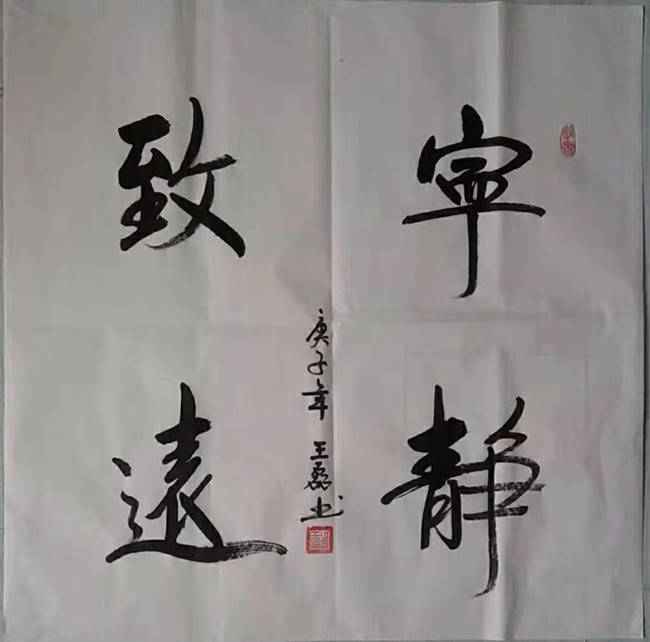 寧靜
致遠
庚子年 王磊书